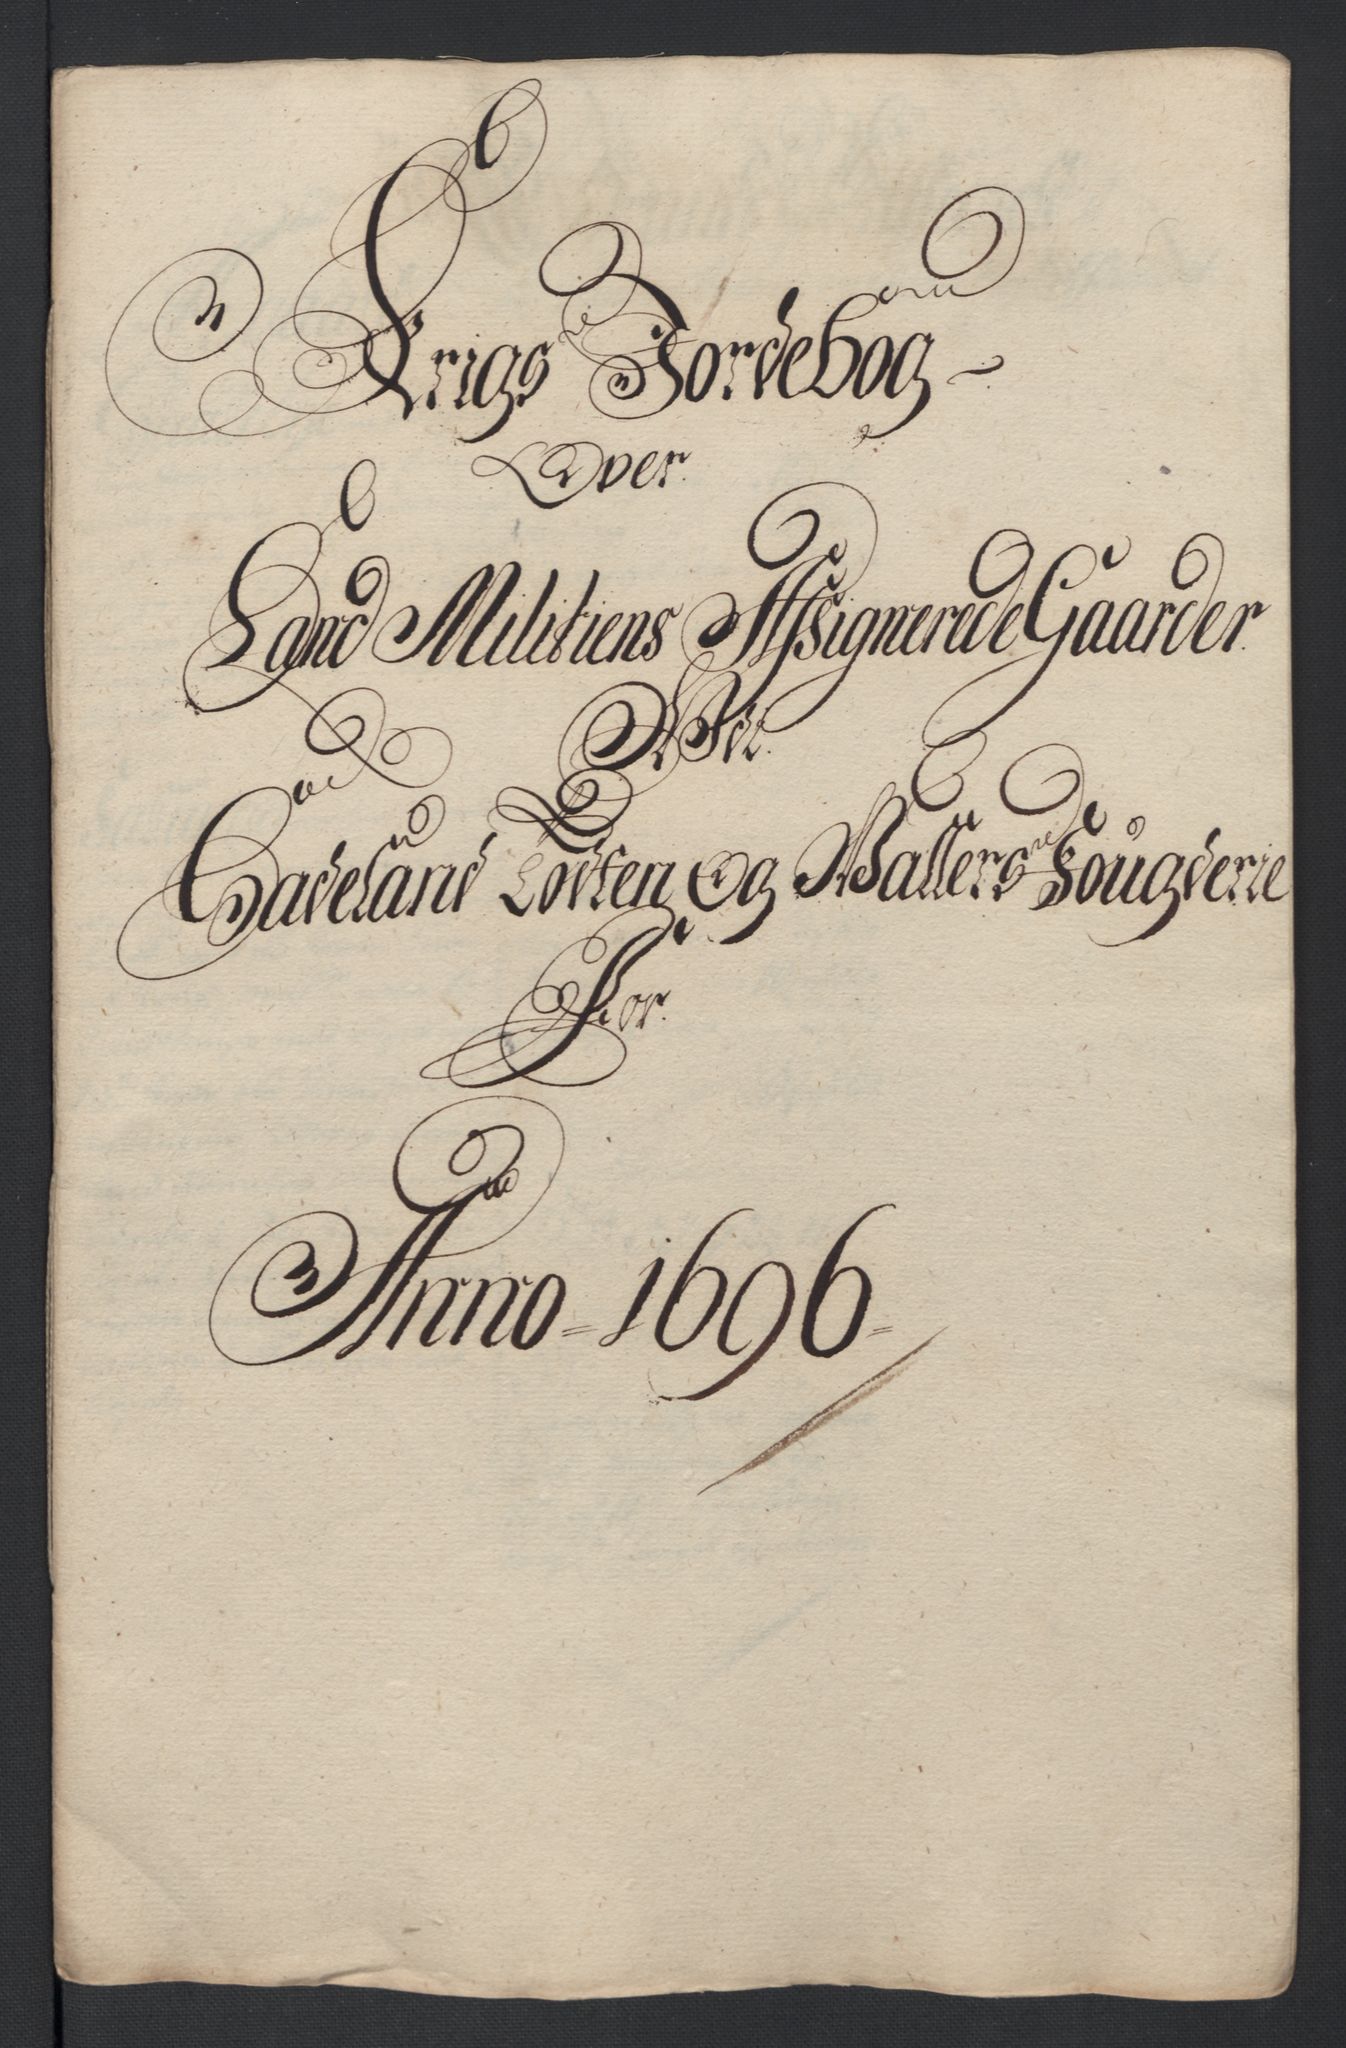 Krigs Jordebog
Over
Land Militiens Assignerede Gaarder
Af
Hadeland Totten Og Walders Fougderie
For
Anno = 1696 =